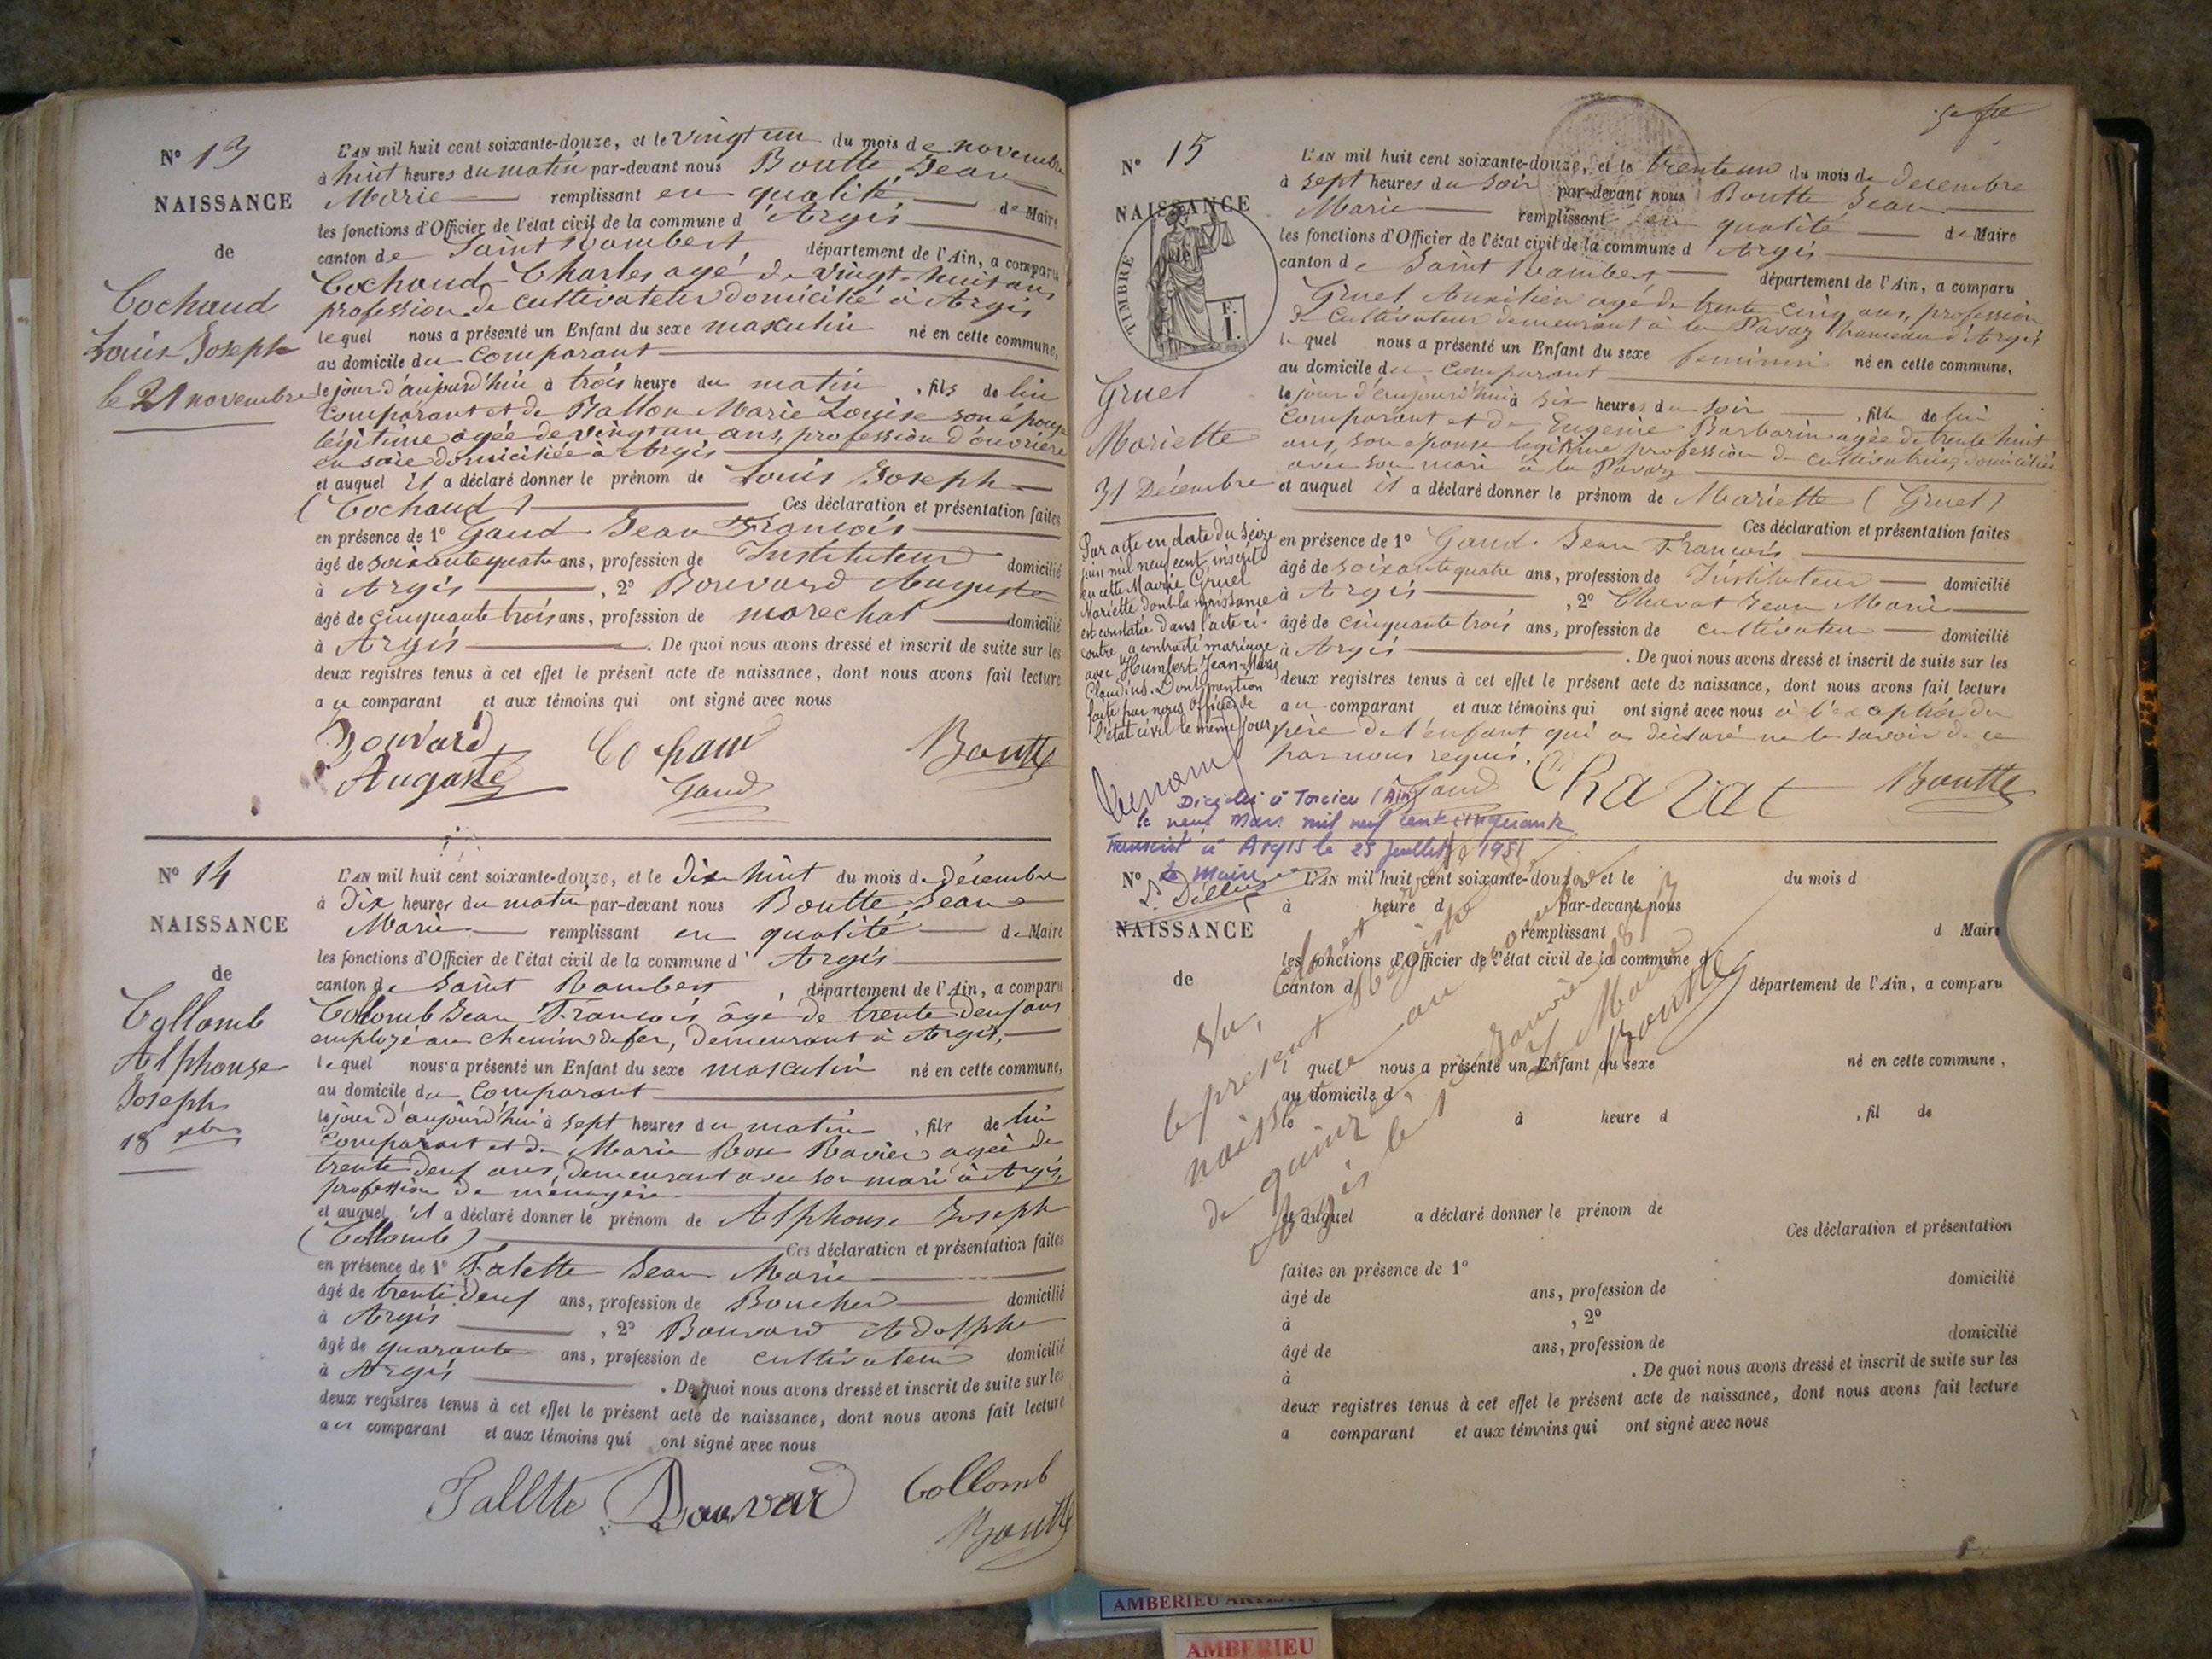 N° 13
NAISSANCE
de
Cochaud
Louis Joseph
le 21 novembre
L'AN mil huit cent soixante-douze, et le vingt un du mois de novembre
à huit heures du matin par-devant nous Boutte Jean
Marie remplissant en qualité de Maire
les fonctions d'Officier de l'état civil de la commune d'Argis
canton de Saint Rambert, département de l'Ain, a comparu
Cochaud Charles agé de vingt-huit ans
profession de cultivateur domicilié à Argis
lequel nous a présenté un Enfant du sexe masculin né en cette commune,
au domicile du comparant
le jour d'aujourd'hui à trois heure du matin, fils de lui
comparant et de Ballon Marie Louise son épouse
légitime agée de vingt un ans, profession d'ouvrière
en soie domiciliée à Argis
et auquel il a déclaré donner le prénom de Louis Joseph
(Cochaud) Ces déclaration et présentation faites
en présence de 1° Gaud Jean François
âgé de soixante quatre ans, profession de Instituteur domicilié
à Argis, 2° Bouvard Auguste
âgé de cinquante trois ans, profession de marechal domicilié
à Argis. De quoi nous avons dressé et inscrit de suite sur les
deux registres tenus à cet effet le présent acte de naissance, dont nous avons fait lecture
au comparant et aux témoins qui ont signé avec nous
Bouvard Cochaud Boutte
Auguste Gaud
N° 14
NAISSANCE
de
Collomb
Alphonse
Joseph
18 xbre
L'AN mil huit cent soixante-douze, et le dix huit du mois de décembre
à dix heures du matin par-devant nous Boutte Jean
Marie remplissant en qualité de Maire
les fonctions d'Officier de l'état civil de la commune d'Argis
canton de Saint Rambert, département de l'Ain, a comparu
Collomb Jean François âgé de trente deux ans
employé au chemin de fer, demeurant à Argis,
lequel nous a présenté un Enfant du sexe masculin né en cette commune,
au domicile du comparant
le jour d'aujourd'hui à sept heures du matin, fils de lui
comparant et de Marie Rose Ravier agée de
trente deux ans, demeurant avec son mari à Argis,
profession de ménagère
et auquel il a déclaré donner le prénom de Alphonse Joseph
(Collomb) Ces déclaration et présentation faites
en présence de 1° Falette Jean Marie
âgé de trente deux ans, profession de Boucher domicilié
à Argis, 2° Bouvard Adolphe
âgé de quarante ans, profession de cultivateur domicilié
à Argis. De quoi nous avons dressé et inscrit de suite sur les
deux registres tenus à cet effet le présent acte de naissance, dont nous avons fait lecture
au comparant et aux témoins qui ont signé avec nous
Fallette Bouvard Collomb
Boutte
N° 15
NAISSANCE
TIMBRE
Gruel
Mariette
31 Décembre
Par acte en date du seize
juin mil neuf cent, inscrit
en cette Mairie Gruel
Mariette dont la naissance
est constatée dans l'acte ci-
contre, a contracté mariage
avec Humbert Jean-Marie
Claudius. Dont mention
faite par nous officier de
l'état civil le même jour
L'AN mil huit cent soixante-douze, et le trente un du mois de decembre
à sept heures du soir par-devant nous Boutte Jean
Marie remplissant en qualité de Maire
les fonctions d'Officier de l'état civil de la commune d'Argis
canton de Saint Rambert, département de l'Ain, a comparu
Gruel Anthelme agé de trente cinq ans, profession
de cultivateur demeurant à la Pavaz hameau d'Argis
lequel nous a présenté un Enfant du sexe feminin né en cette commune,
au domicile du comparant
le jour d'aujourd'hui à six heures du soir, fille de lui
comparant et de Eugenie Barbarin agée de trente huit
ans, son épouse légitime profession de cultivatrice, domiciliée
avec son mari à la Pavaz
et auquel il a déclaré donner le prénom de Mariette (Gruel)
Ces déclaration et présentation faites
en présence de 1° Gaud Jean François
âgé de soixante quatre ans, profession de Instituteur domicilié
à Argis, 2° Chavat Jean Marie
âgé de cinquante trois ans, profession de cultivateur domicilié
à Argis. De quoi nous avons dressé et inscrit de suite sur les
deux registres tenus à cet effet le présent acte de naissance, dont nous avons fait lecture
au comparant et aux témoins qui ont signé avec nous à l'exception du
père de l'enfant qui a déclaré ne le savoir de ce
par nous requis.
Gaud Chavat Boutte
Décédée à Torcieu (Ain)
le neuf Mars mil neuf cent cinquante
Transcrit à Argis le 25 juillet 1951
Le Maire
N°
NAISSANCE
de
L'AN mil huit cent soixante-douze, et le du mois d
à heure d par-devant nous
remplissant d Maire
les fonctions d'Officier de l'état civil de la commune d
canton d département de l'Ain, a comparu
quel nous a présenté un Enfant du sexe né en cette commune,
au domicile d
le à heure d, fil de
et auquel a déclaré donner le prénom de
Ces déclaration et présentation
faites en présence de 1°
âgé de ans, profession de domicilié
à, 2°
âgé de ans, profession de domicilié
à. De quoi nous avons dressé et inscrit de suite sur les
deux registres tenus à cet effet le présent acte de naissance, dont nous avons fait lecture
a comparant et aux témoins qui ont signé avec nous
Vu,
le présent registre
naissance au
de quinze
Argis le 1 Janvier 1873
Le Maire
Boutte
AMBERIEU
AMBERIEU